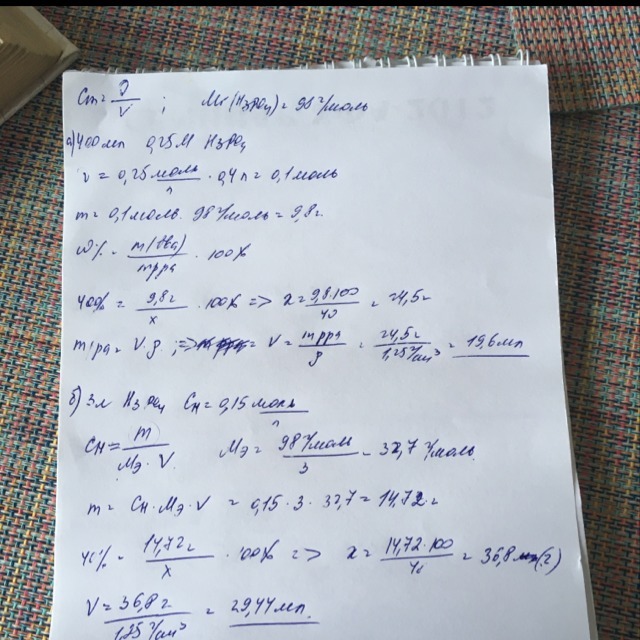 Cm = ν/V ; Mr(H3PO4) = 98 г/моль
а) 400 мл 0,25 М H3PO4
ν = 0,25 моль/л · 0,4 л = 0,1 моль
m = 0,1 моль · 98 г/моль = 9,8 г.
ω% = m(тва)/mppа · 100%
40% = 9,8г/x · 100% => x = 9,8·100/40 = 24,5г
mppа = V·ρ ; => V = mppа/ρ = 24,5г/1,25 г/см³ = 19,6 мл
б) 3л H3PO4 Cн = 0,15 моль/л
Cн = m/Mэ·V Mэ = 98 г/моль/3 = 32,7 г/моль
m = Cн·Mэ·V = 0,15·3·32,7 = 14,72г
40% = 14,72г/x · 100% => x = 14,72·100/40 = 36,8 (г)
V = 36,8г/1,25 г/см³ = 29,44 мл.